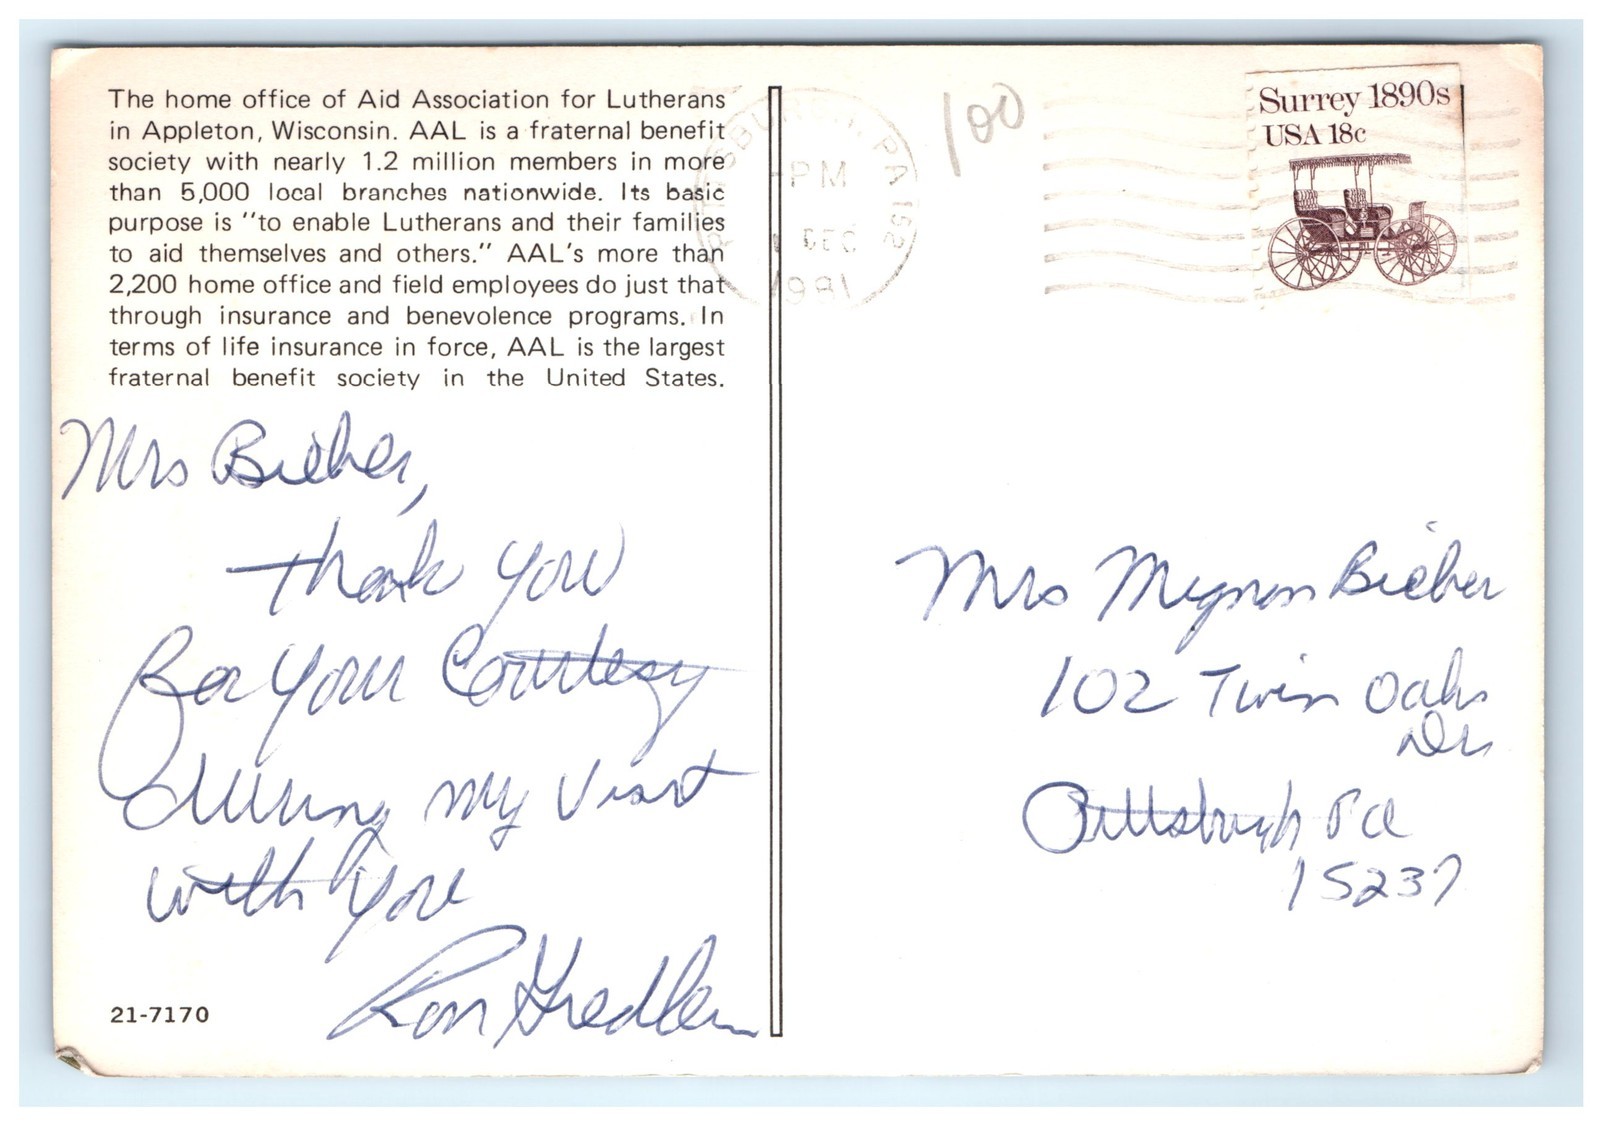 The home office of Aid Association for Lutherans
in Appleton, Wisconsin. AAL is a fraternal benefit
society with nearly 1.2 million members in more
than 5,000 local branches nationwide. Its basic
purpose is "to enable Lutherans and their families
to aid themselves and others." AAL's more than
2,200 home office and field employees do just that
through insurance and benevolence programs. In
terms of life insurance in force, AAL is the largest
fraternal benefit society in the United States.
Mrs Bieber,
thank you
for your Courtesy
during my visit
with you
Ron
21-7170
PM
DEC
1981
PA 152
100
Surrey 1890s
USA 18c
Mrs Mignon Bieber
102 Twin Oaks
Dr
Pittsburgh Pa
15237